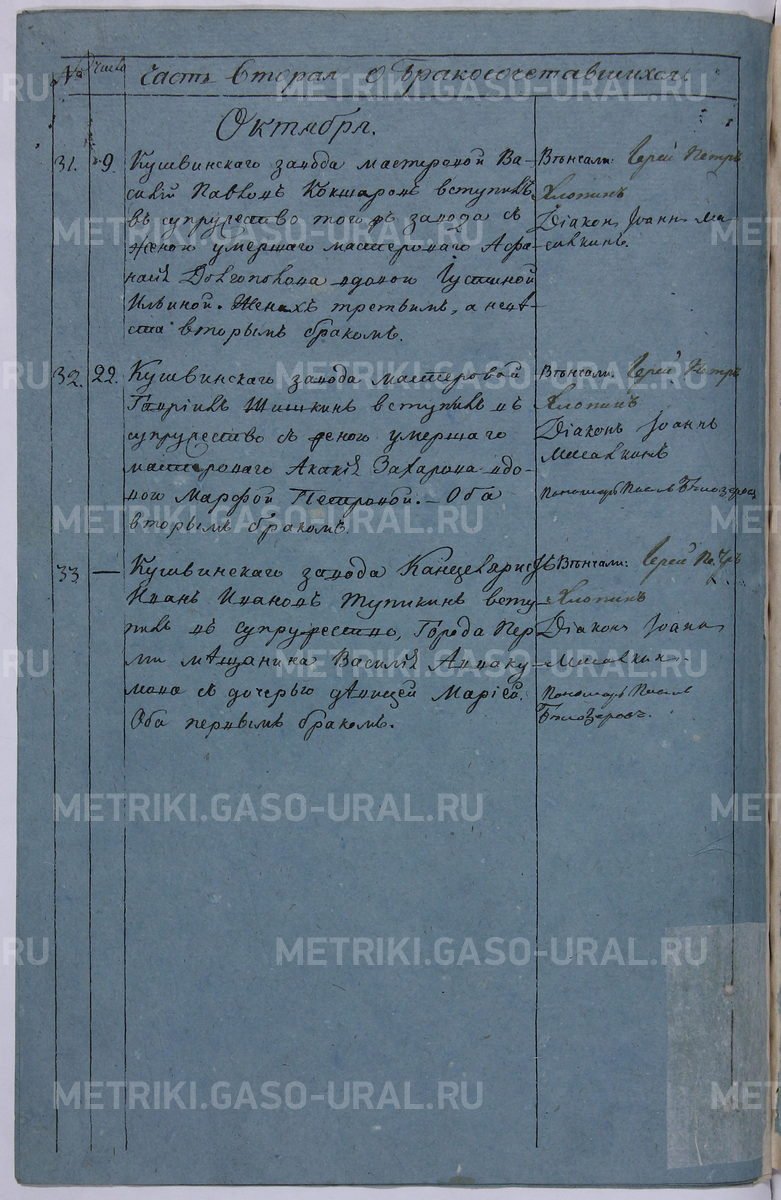 № Число Часть вторая о бракосочетавшихся
Октября.
31. 9. Кушвинскаго завода мастеровой Ва-
силій Павловъ Кокшаровъ вступилъ
въ супружество того ж завода съ
женою умершаго мастероваго Афа-
насія Долгополова вдовою Іустиной
Ильиной. Женихъ третьимъ, а неве-
ста вторымъ бракомъ.
Вѣнчали: Іерей Петръ
Хлопинъ
Діаконъ Іоаннъ
32. 22. Кушвинскаго завода мастеровой
Гаврилъ Шишкинъ вступилъ въ
супружество съ женою умершаго
мастероваго Акакія Захарова вдо-
вою Марфой Петровой. Оба
вторымъ бракомъ.
Вѣнчали: Іерей Петръ
Хлопинъ
Діаконъ Іоаннъ
Пономарь Павелъ
33 — Кушвинскаго завода Канцеляристъ
Иванъ Ивановъ Тупикинъ всту-
пилъ въ супружество, Города Пер-
ми мѣщанина Василія
съ дочерью дѣвицей Маріей.
Оба первымъ бракомъ.
Вѣнчали: Іерей Петръ
Хлопинъ
Діаконъ Іоаннъ
Пономарь Павелъ
Бѣлозеровъ.
METRIKI.GASO-URAL.RU